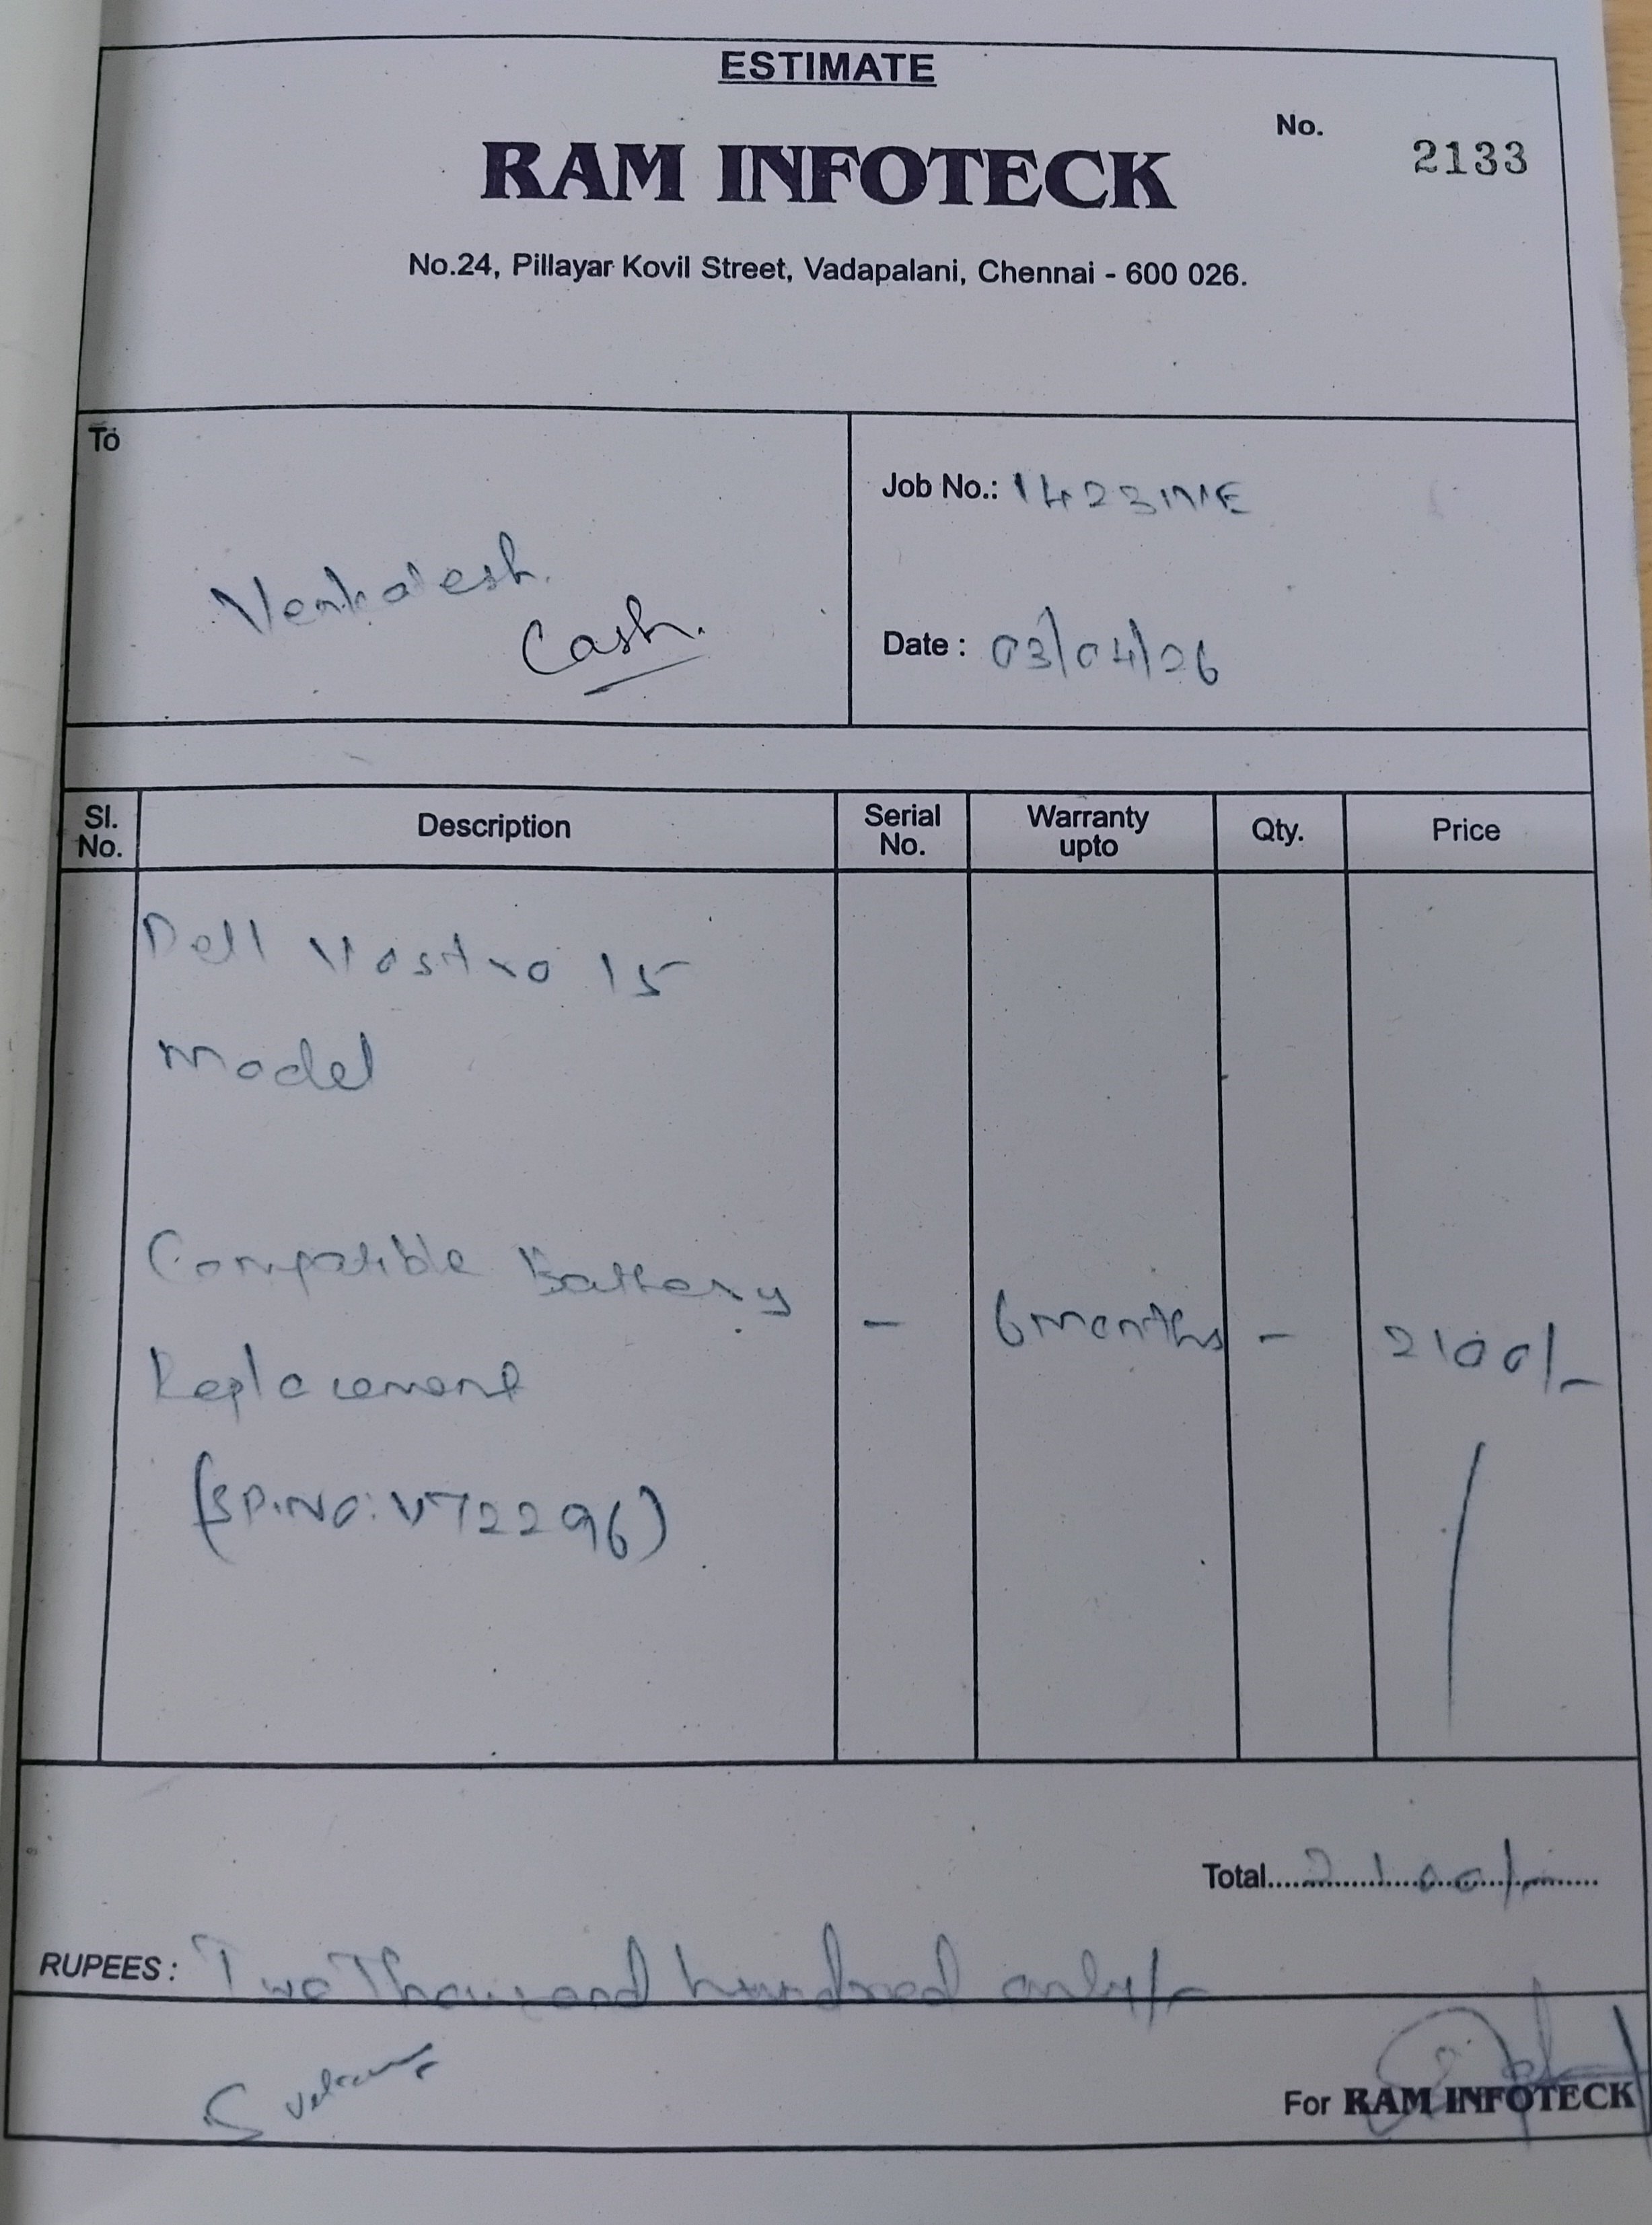 ESTIMATE
No. 2133
RAM INFOTECK
No.24, Pillayar Kovil Street, Vadapalani, Chennai - 600 026.
To
Venkatesh.
Cash.
Job No.:
Date : 03/04/26
Sl. No. Description Serial No. Warranty upto Qty. Price
Dell Vostro 15
Model
Compatible Battery
- 6 months - 2100/-
Replacement
(SP.NO: V72296)
Total 2100/-
RUPEES : Two Thousand hundred only/-
For RAM INFOTECK